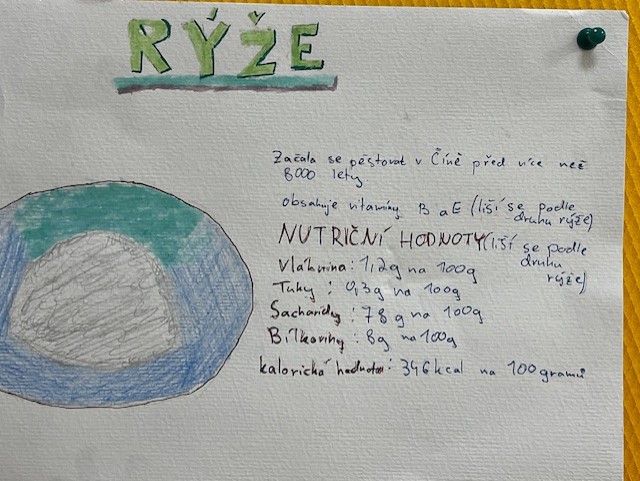 RÝŽE
Začala se pěstovat v Číně před více než
8000 lety
obsahuje vitamíny B a E (liší se podle
druhu rýže)
NUTRIČNÍ HODNOTY (liší se podle
druhu
rýže)
Vláknina: 1,2g na 100g
Tuky: 0,3g na 100g
Sacharidy: 78g na 100g
Bílkoviny: 8g na 100g
kalorická hodnota: 346kcal na 100gramů